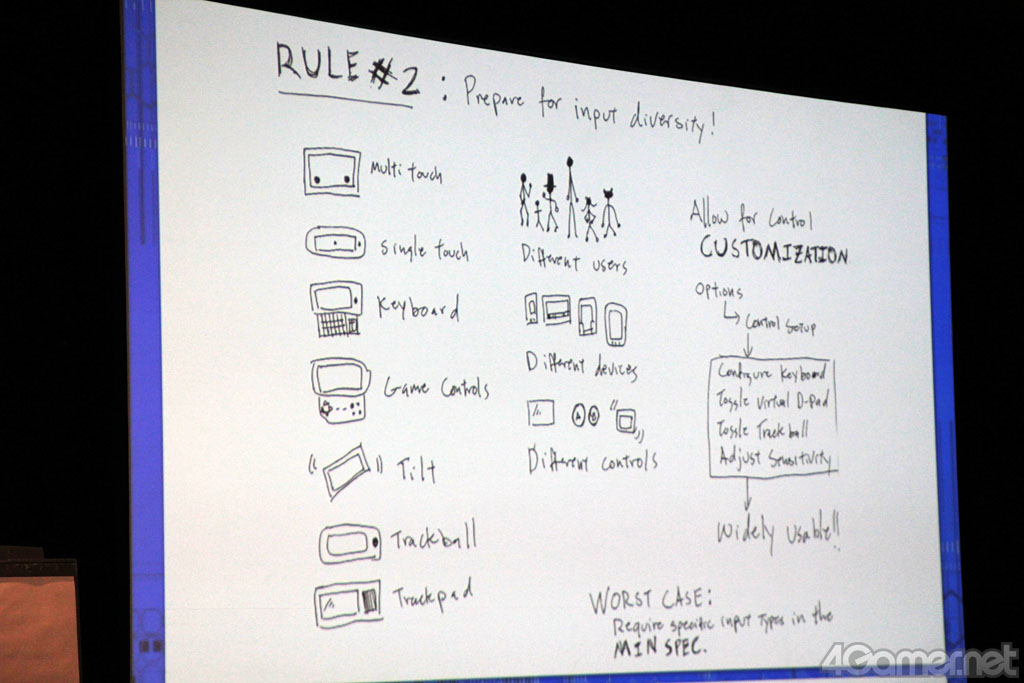 RULE #2 : Prepare for input diversity!
Multi touch
Single touch
Keyboard
Game Controls
Tilt
Trackball
Trackpad
Different users
Different devices
A B
Different controls
Allow for Control
CUSTOMIZATION
Options
Control Setup
Configure Keyboard
Toggle Virtual D-Pad
Toggle Trackball
Adjust Sensitivity
Widely Usable!!
WORST CASE:
Require specific input types in the
MIN SPEC.
4Gamer.net